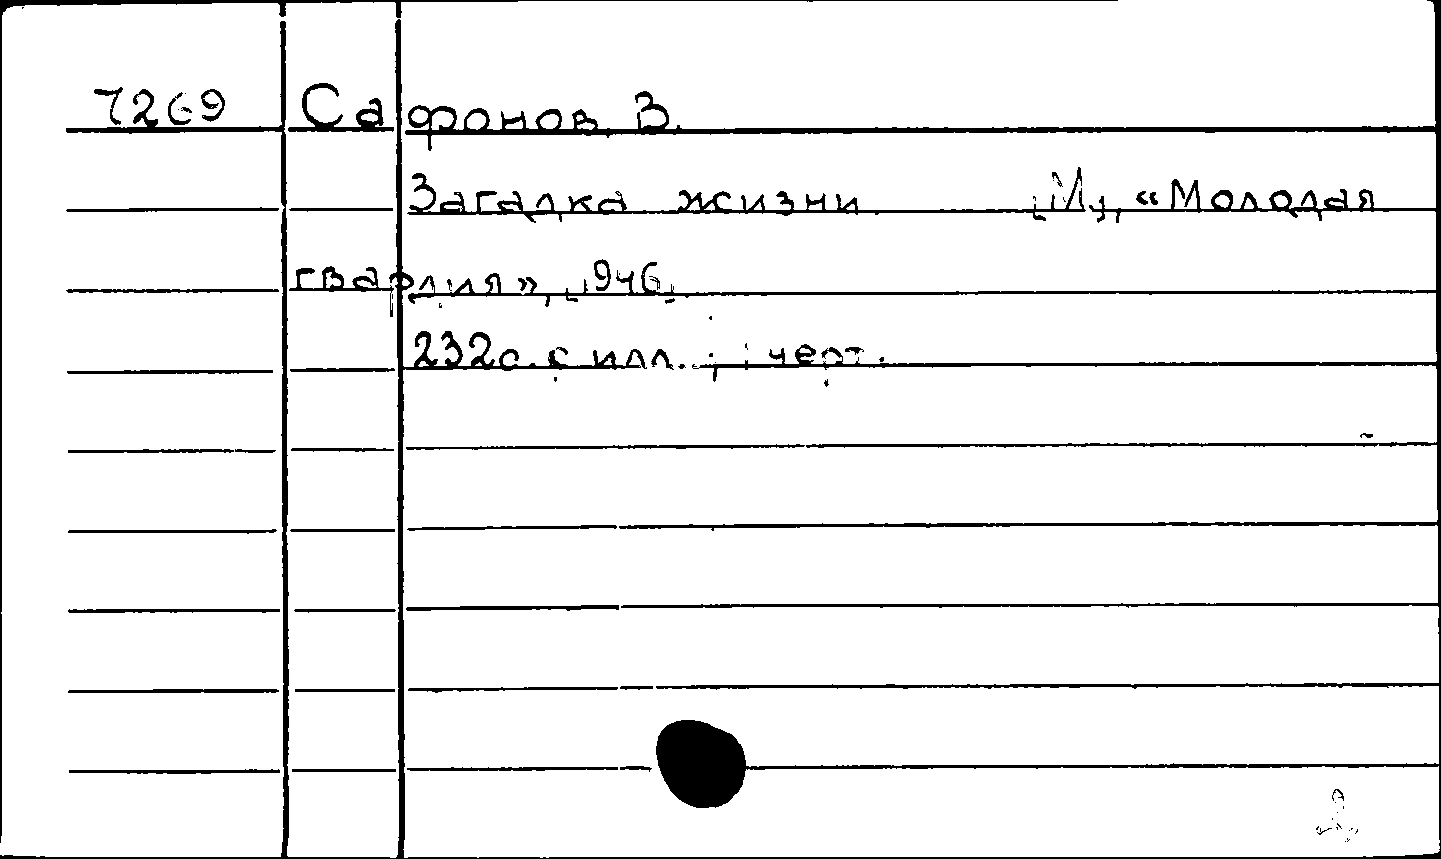 7269 Сафонов, В.
Загадка жизни [М], «Молодая
гвардия», [1946].
232с. с илл. ; черт.